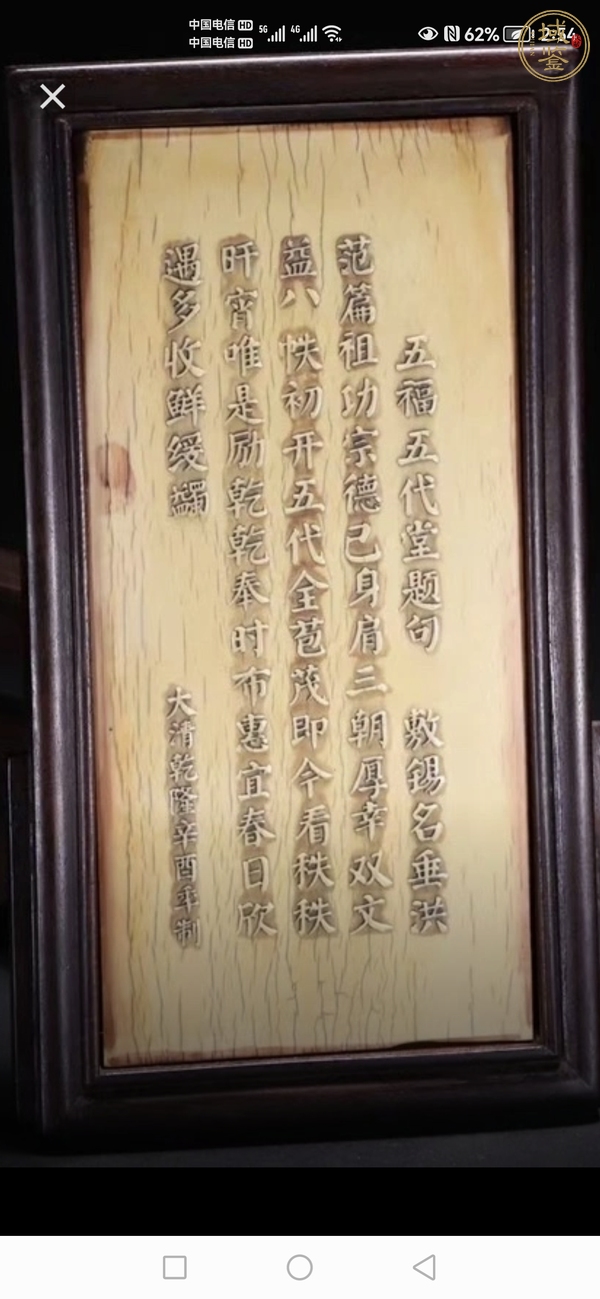 中国电信 HD 5G 4G 62% 2:54
中国电信 HD
域鉴
五福五代堂题句 敷锡名垂洪
范篇祖功宗德已身肩三朝厚幸双文
益八帙初开五代全苞茂即今看秩秩
旰宵唯是励乾乾奉时布惠宜春日欣
遇多收鲜绶蠲
大清乾隆辛酉年制